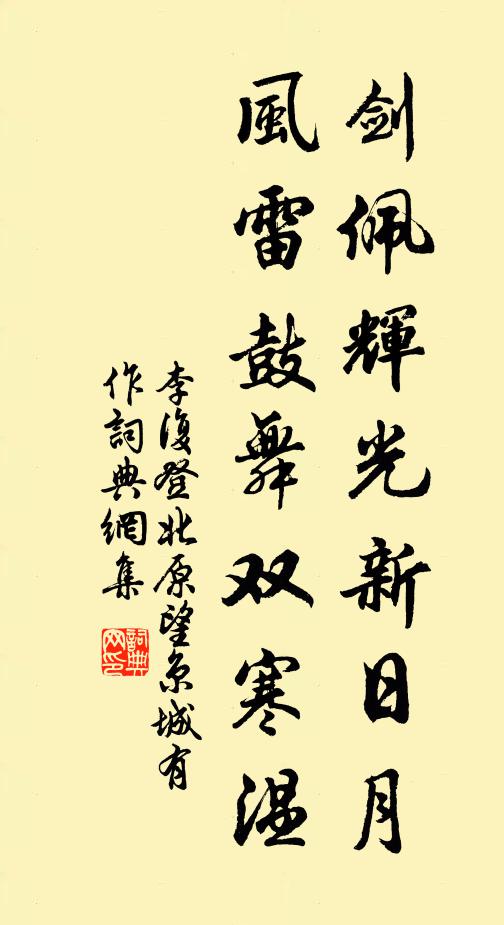 劍佩輝光新日月
風雷鼓舞双寒温
李復登北原望京城有
作詞典網集
詞典网印